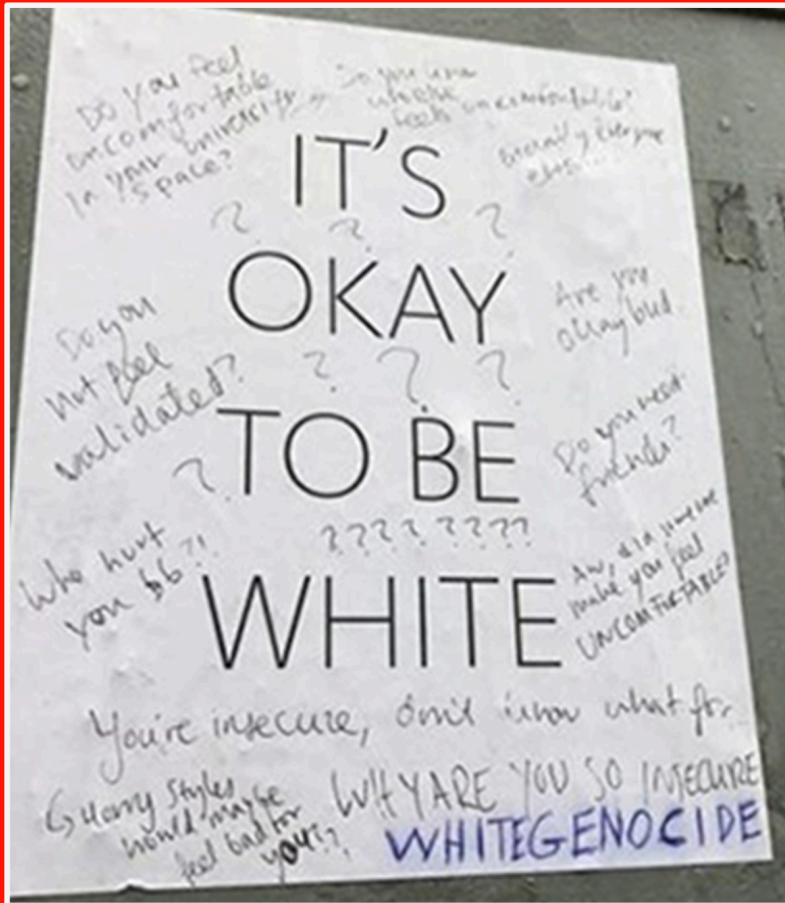 Do you feel
uncomfortable
in your university
space?
Do you know
where
feels uncomfortable?
everyone
IT'S
? ? ?
OKAY
Are you
okay bud
Do you
not feel
validated?
? ? ?
TO BE
?
Do you need
friends?
???? ????
Who hurt
you bb?!
WHITE
Aw, did someone
make you feel
UNCOMFORTABLE?
You're insecure, don't know what for
Harry Styles
would maybe
feel bad for
you??
WHY ARE YOU SO INSECURE
WHITEGENOCIDE